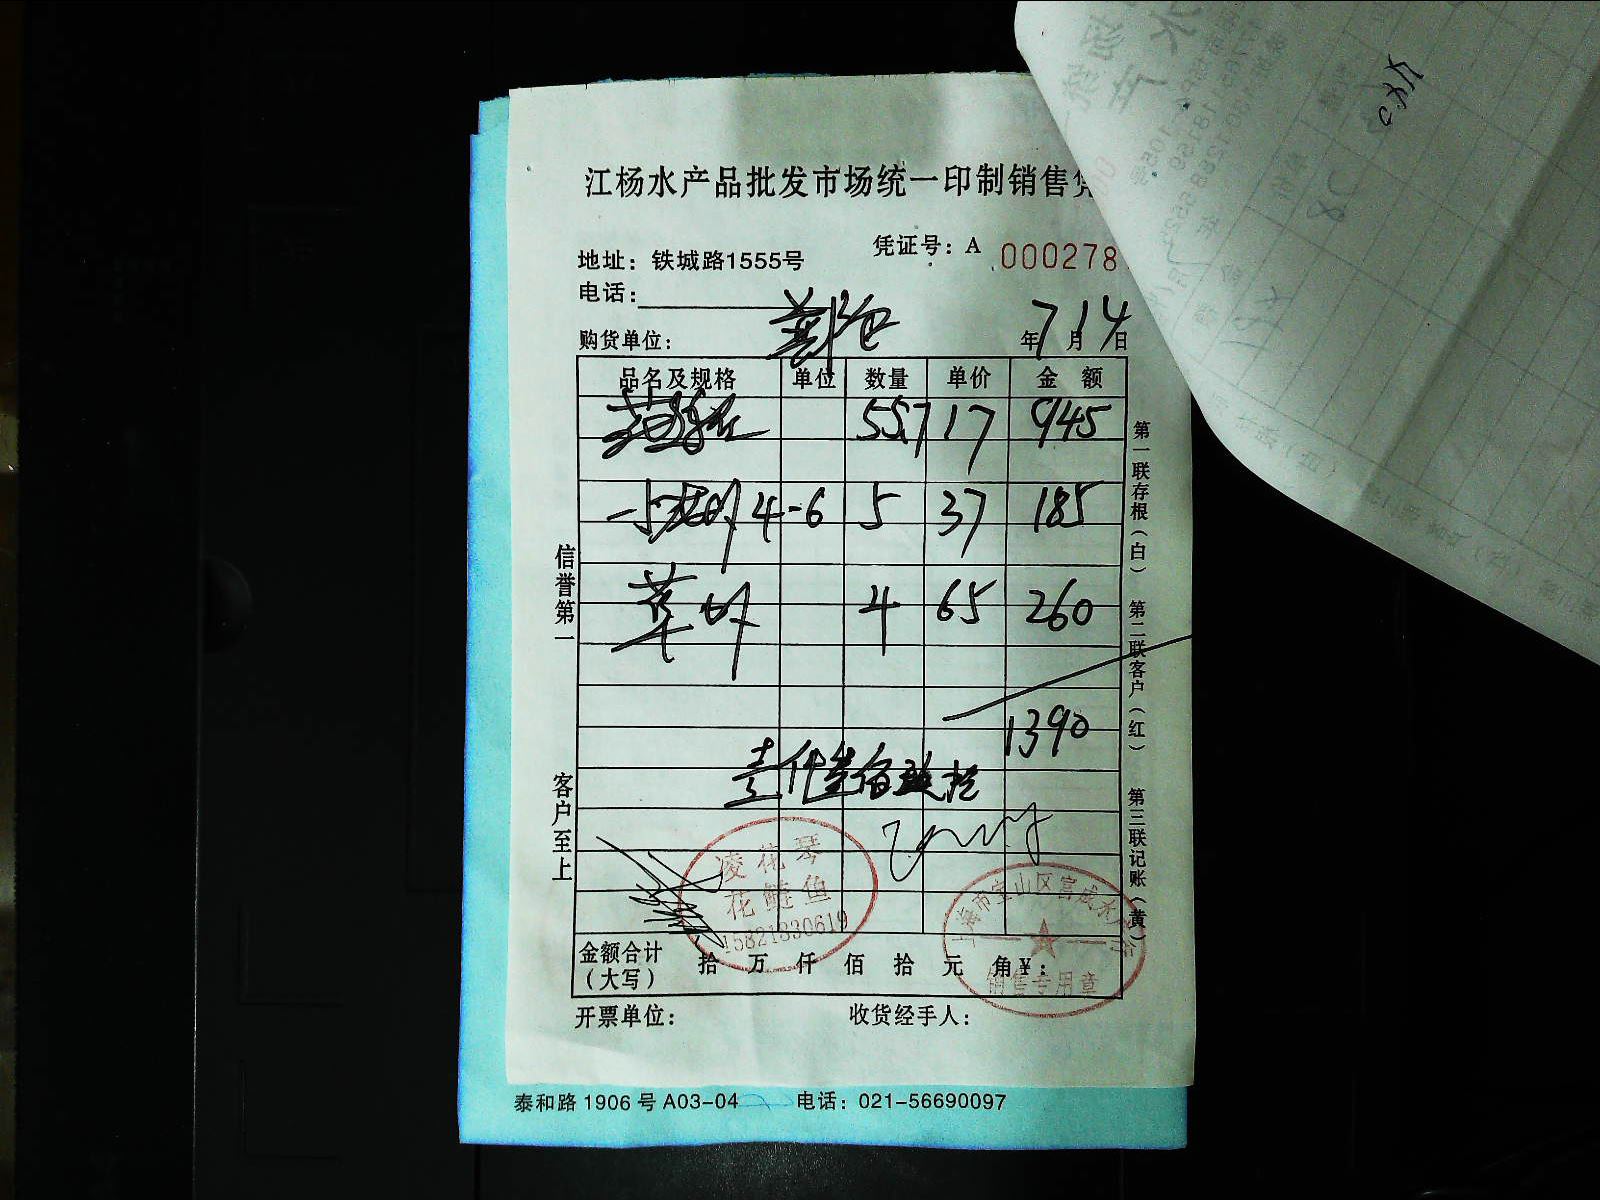 江杨水产品批发市场统一印制销售凭
凭证号：A 000278
地址：铁城路1555号
电话：
购货单位： 年7月14日
品名及规格 单位 数量 单价 金额
55.7 17 945
4-6 5 37 185
4 65 260
1390
壹仟叁佰玖拾
凌花琴
花鲢鱼
15821330619
上海市宝山区富成水产行
销售专用章
金额合计（大写） 拾 万 仟 佰 拾 元 角 ¥：
开票单位： 收货经手人：
信誉第一 客户至上
第一联存根（白） 第二联客户（红） 第三联记账（黄）
泰和路 1906 号 A03-04 电话：021-56690097